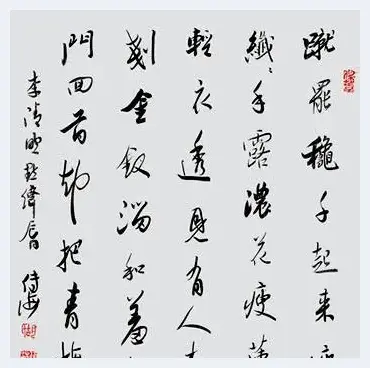 蹴罷龝千起來
纖纖手露濃花瘦薄
輕衣透見有人
剗金釵溜和羞
門回首却把青梅
李清照點絳唇